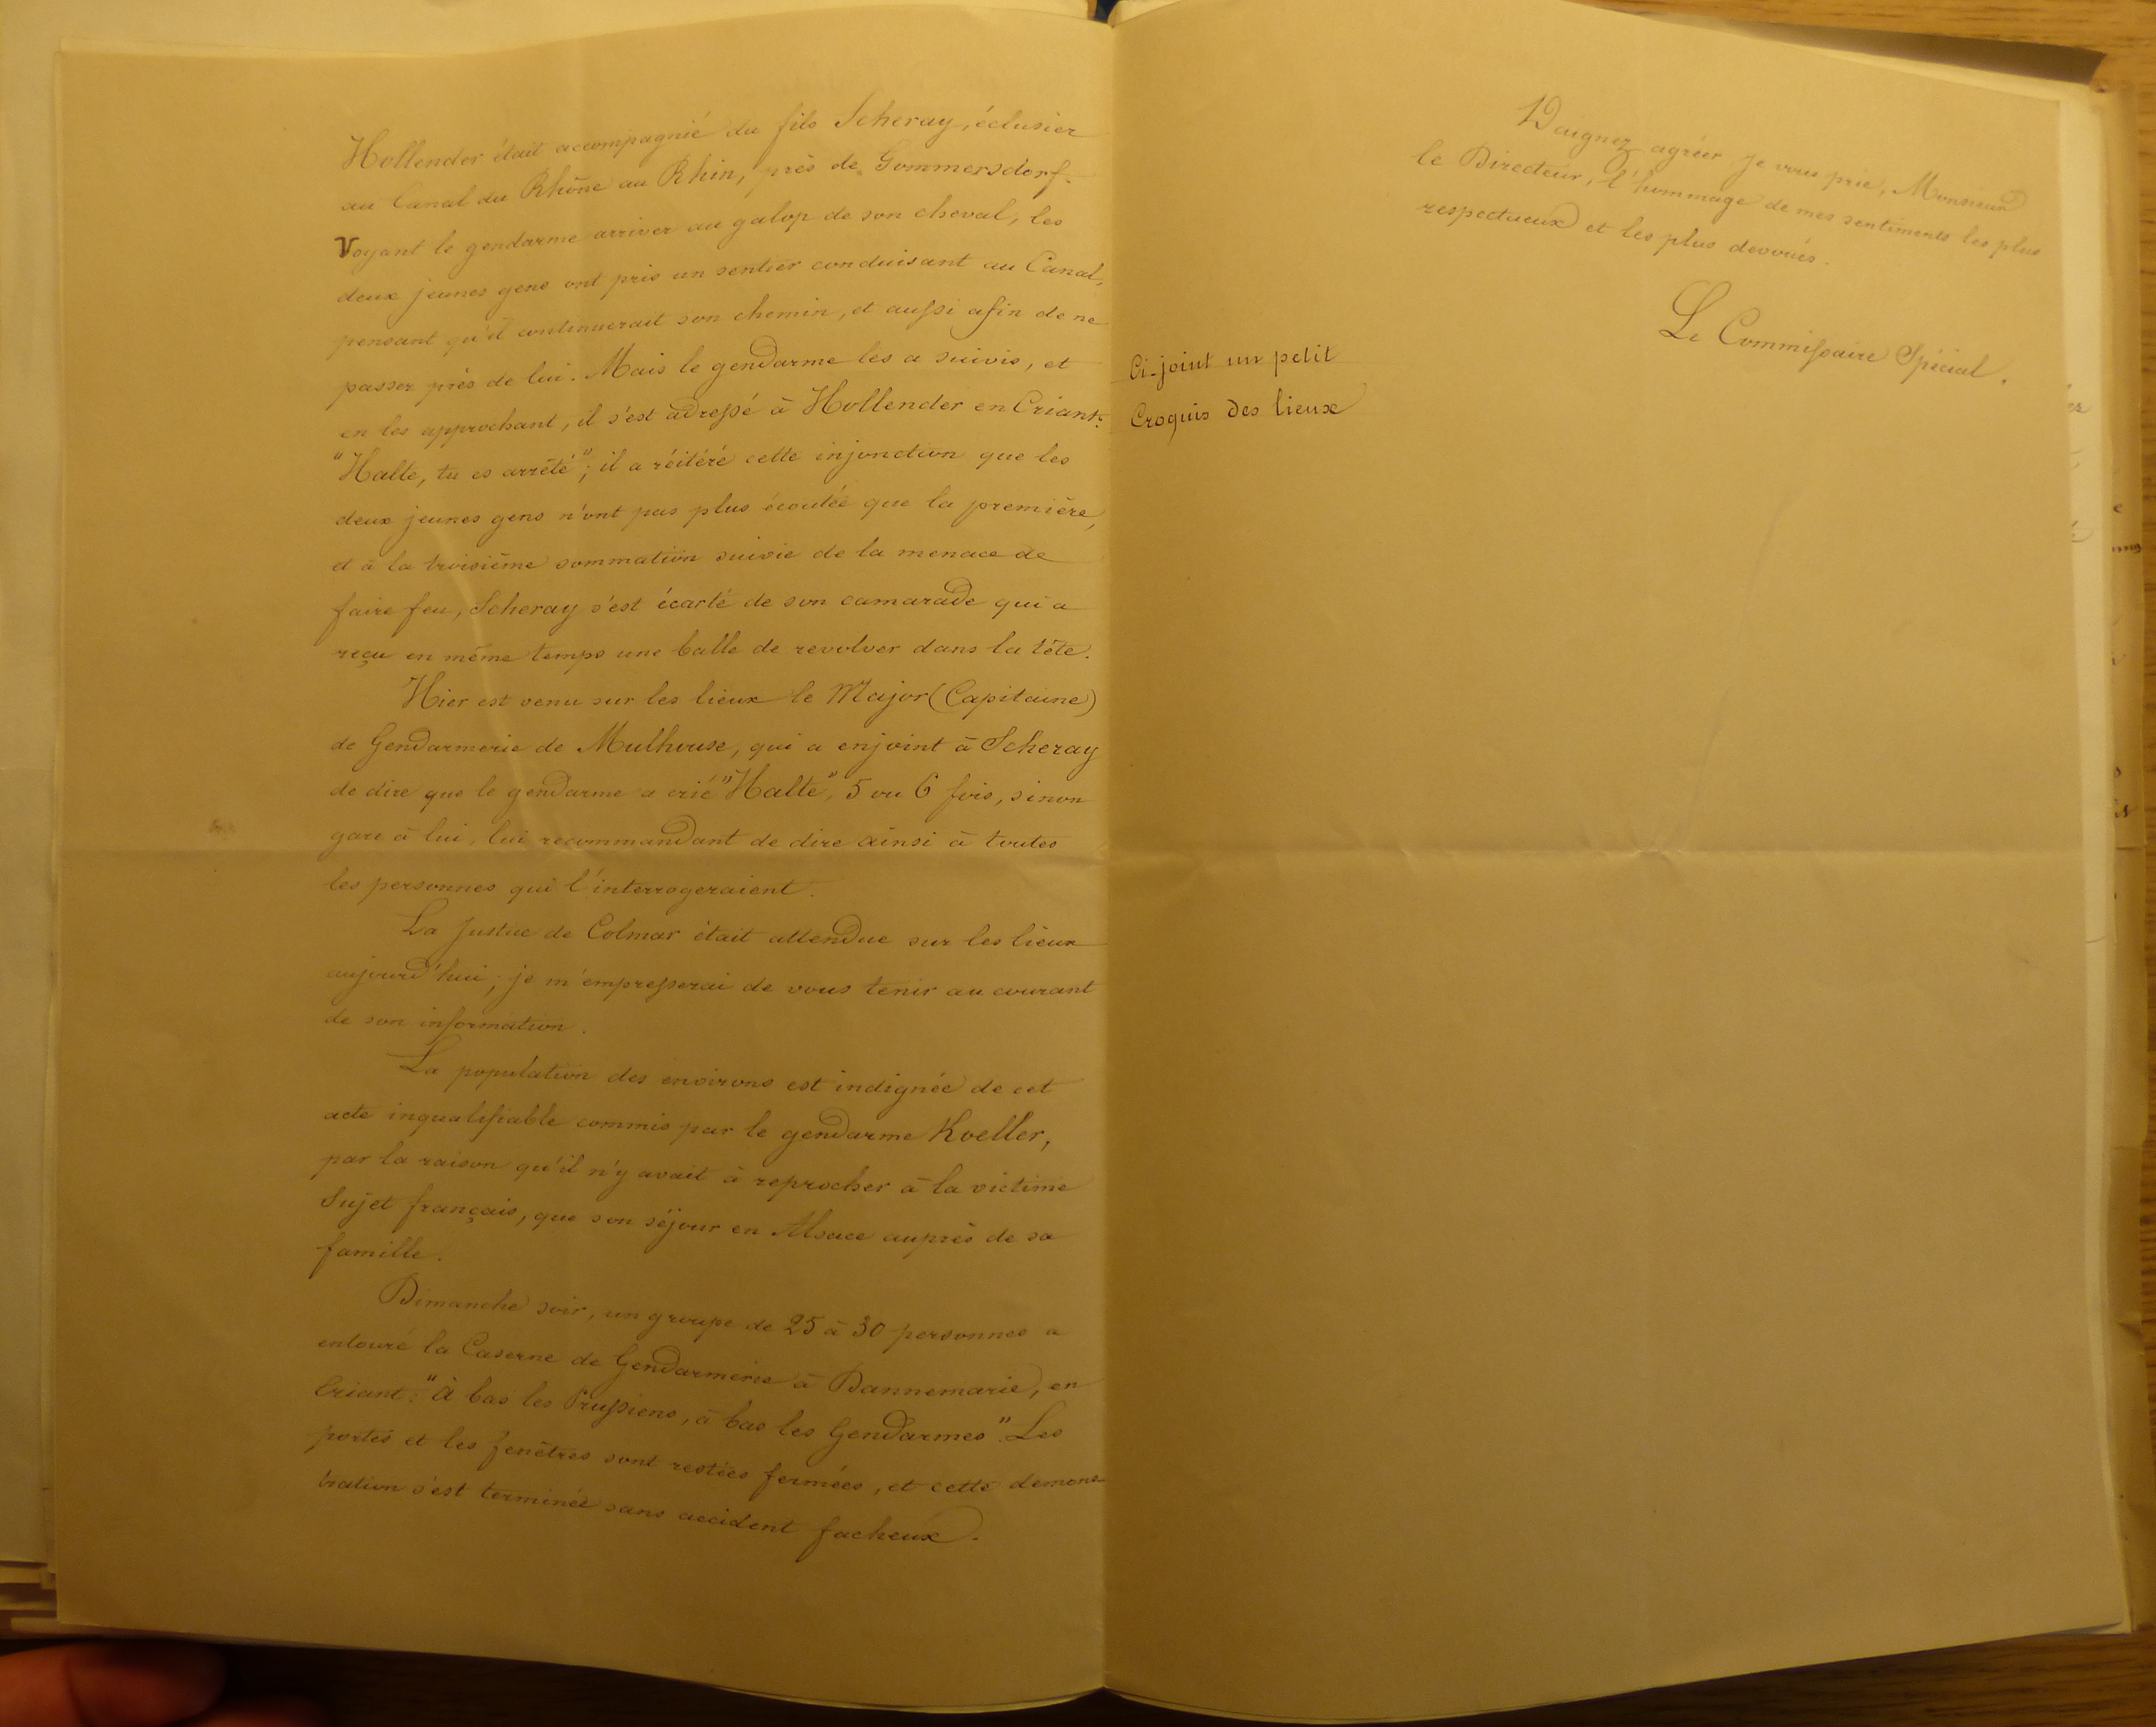 Hollender était accompagnié du fils Scheray, éclusier
au Canal du Rhône au Rhin, près de Gommersdorf.
Voyant le gendarme arriver au galop de son cheval, les
deux jeunes gens ont pris un sentier conduisant au Canal,
pensant qu'il continuerait son chemin, et aussi afin de ne
passer près de lui. Mais le gendarme les a suivis, et
en les approchant, il s'est adressé à Hollender en Criant:
"Halte, tu es arrêté"; il a réitéré cette injonction que les
deux jeunes gens n'ont pas plus écoutée que la première,
et à la troisième sommation suivie de la menace de
faire feu, Scheray s'est écarté de son camarade qui a
reçu en même temps une balle de revolver dans la tête.
Hier est venu sur les lieux le Major (Capitaine)
de Gendarmerie de Mulhouse, qui a enjoint à Scheray
de dire que le gendarme a crié "Halte", 5 ou 6 fois, sinon
gare à lui, lui recommandant de dire ainsi à toutes
les personnes qui l'interrogeraient.
La Justice de Colmar était attendue sur les lieux
aujourd'hui; je m'empresserai de vous tenir au courant
de son information.
La population des environs est indignée de cet
acte inqualifiable commis par le gendarme Koeller,
par la raison qu'il n'y avait à reprocher à la victime
Sujet français, que son séjour en Alsace auprès de sa
famille.
Dimanche soir, un groupe de 25 à 30 personnes a
entouré la Caserne de Gendarmerie à Dannemarie, en
Criant: "à bas les Prussiens, à bas les Gendarmes". Les
portes et les fenêtres sont restées fermées, et cette demons
tration s'est terminée sans accident facheux.
Daignez agréer je vous prie, Monsieur
le Directeur, l'hommage de mes sentiments les plus
respectueux et les plus devoués.
Le Commissaire Spécial.
Ci-joint un petit
Croquis des lieux